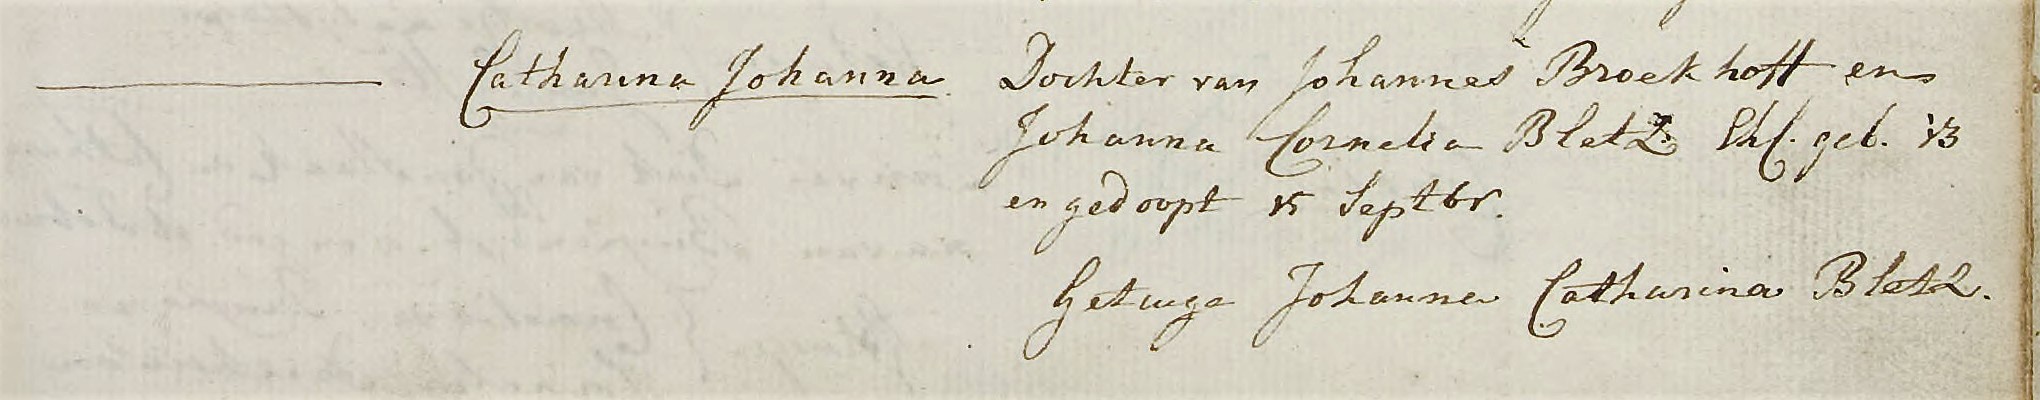 Catharina Johanna. Dochter van Johannes Broekhoff en
Johanna Cornelia Bletz. Ehl. geb. 13
en gedoopt 15 Septbr.
Getuige Johanna Catharina Bletz.